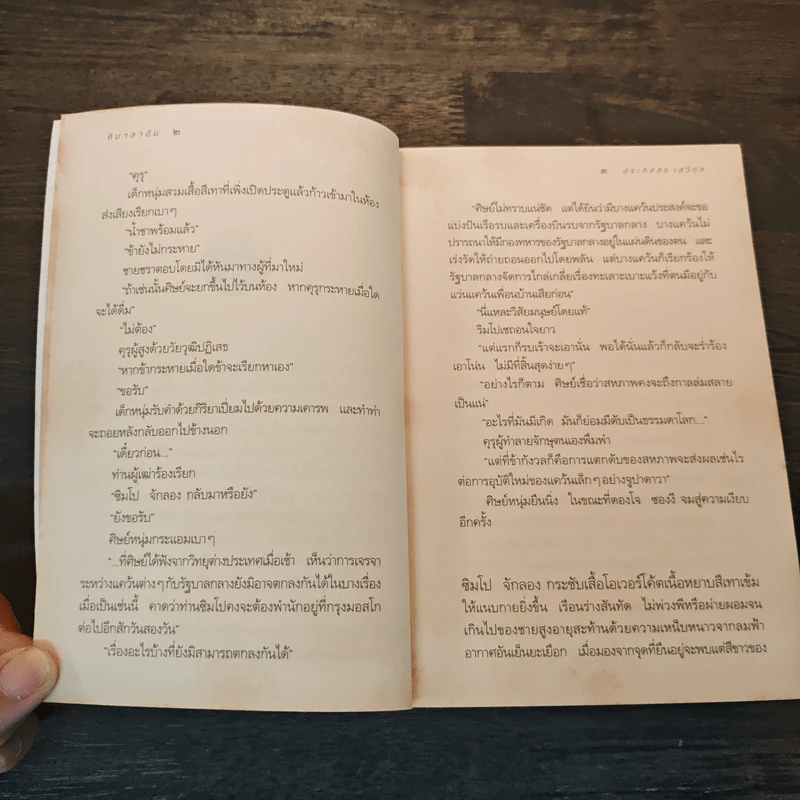 หิมาลายัน ๒
"คุรุ"
เด็กหนุ่มสวมเสื้อสีเทาที่เพิ่งเปิดประตูแล้วก้าวเข้ามาในห้อง
ส่งเสียงเรียกเบาๆ
"น้ำชาพร้อมแล้ว"
"ข้ายังไม่กระหาย"
ชายชราตอบโดยมิได้หันมาทางผู้ที่มาใหม่
"ถ้าเช่นนั้นศิษย์จะยกขึ้นไปไว้บนห้อง หากคุรุกระหายเมื่อใด
จะได้ดื่ม"
"ไม่ต้อง"
คุรุผู้สูงด้วยวัยวุฒิปฏิเสธ
"หากข้ากระหายเมื่อใดข้าจะเรียกหาเอง"
"ขอรับ"
เด็กหนุ่มรับคำด้วยกิริยาเปี่ยมไปด้วยความเคารพ และทำท่า
จะถอยหลังกลับออกไปข้างนอก
"เดี๋ยวก่อน..."
ท่านผู้เฒ่าร้องเรียก
"ซิมโป จักลอง กลับมาหรือยัง"
"ยังขอรับ"
ศิษย์หนุ่มกระแอมเบาๆ
"...ที่ศิษย์ได้ฟังจากวิทยุต่างประเทศเมื่อเช้า เห็นว่าการเจรจา
ระหว่างแคว้นต่างๆกับรัฐบาลกลางยังมิอาจตกลงกันได้ในบางเรื่อง
เมื่อเป็นเช่นนี้ คาดว่าท่านซิมโปคงจะต้องพำนักอยู่ที่กรุงมอสโก
ต่อไปอีกสักวันสองวัน"
"เรื่องอะไรบ้างที่ยังมิสามารถตกลงกันได้"
๓ ประภัสสร เสวิกุล
"ศิษย์ไม่ทราบแน่ชัด แต่ได้ยินว่ามีบางแคว้นประสงค์จะขอ
แบ่งปันเรือรบและเครื่องบินรบจากรัฐบาลกลาง บางแคว้นไม่
ปรารถนาให้มีกองทหารของรัฐบาลกลางอยู่ในแผ่นดินของตน และ
เร่งรัดให้ถ่ายถอนออกไปโดยพลัน แต่บางแคว้นก็เรียกร้องให้
รัฐบาลกลางจัดการไกล่เกลี่ยเรื่องทะเลาะเบาะแว้งที่ตนมีอยู่กับ
แว่นแคว้นเพื่อนบ้านเสียก่อน"
"นี่แหละวิสัยมนุษย์โดยแท้"
ริมโปเชถอนใจยาว
"แต่แรกก็รบเร้าจะเอานั่น พอได้นั่นแล้วก็กลับจะร่ำร้อง
เอาโน่น ไม่มีที่สิ้นสุดง่ายๆ"
"อย่างไรก็ตาม ศิษย์เชื่อว่าสหภาพคงจะถึงกาลล่มสลาย
เป็นแน่"
"อะไรที่มันมีเกิด มันก็ย่อมมีดับเป็นธรรมดาโลก..."
คุรุผู้ทำลายจักษุตนเองพึมพำ
"แต่ที่ข้ากังวลก็คือการแตกดับของสหภาพจะส่งผลเช่นไร
ต่อการอุบัติใหม่ของแคว้นเล็กๆอย่างจูปาดาวา"
ศิษย์หนุ่มยืนนิ่ง ในขณะที่ดองโจ ซองงี จมสู่ความเงียบ
อีกครั้ง
ซิมโป จักลอง กระชับเสื้อโอเวอร์โค้ตเนื้อหยาบสีเทาเข้ม
ให้แนบกายยิ่งขึ้น เรือนร่างสันทัด ไม่พ่วงพีหรือผ่ายผอมจน
เกินไปของชายสูงอายุสะท้านด้วยความเหน็บหนาวจากลมฟ้า
อากาศอันเย็นยะเยือก เมื่อมองจากจุดที่ยืนอยู่จะพบแต่สีขาวของ